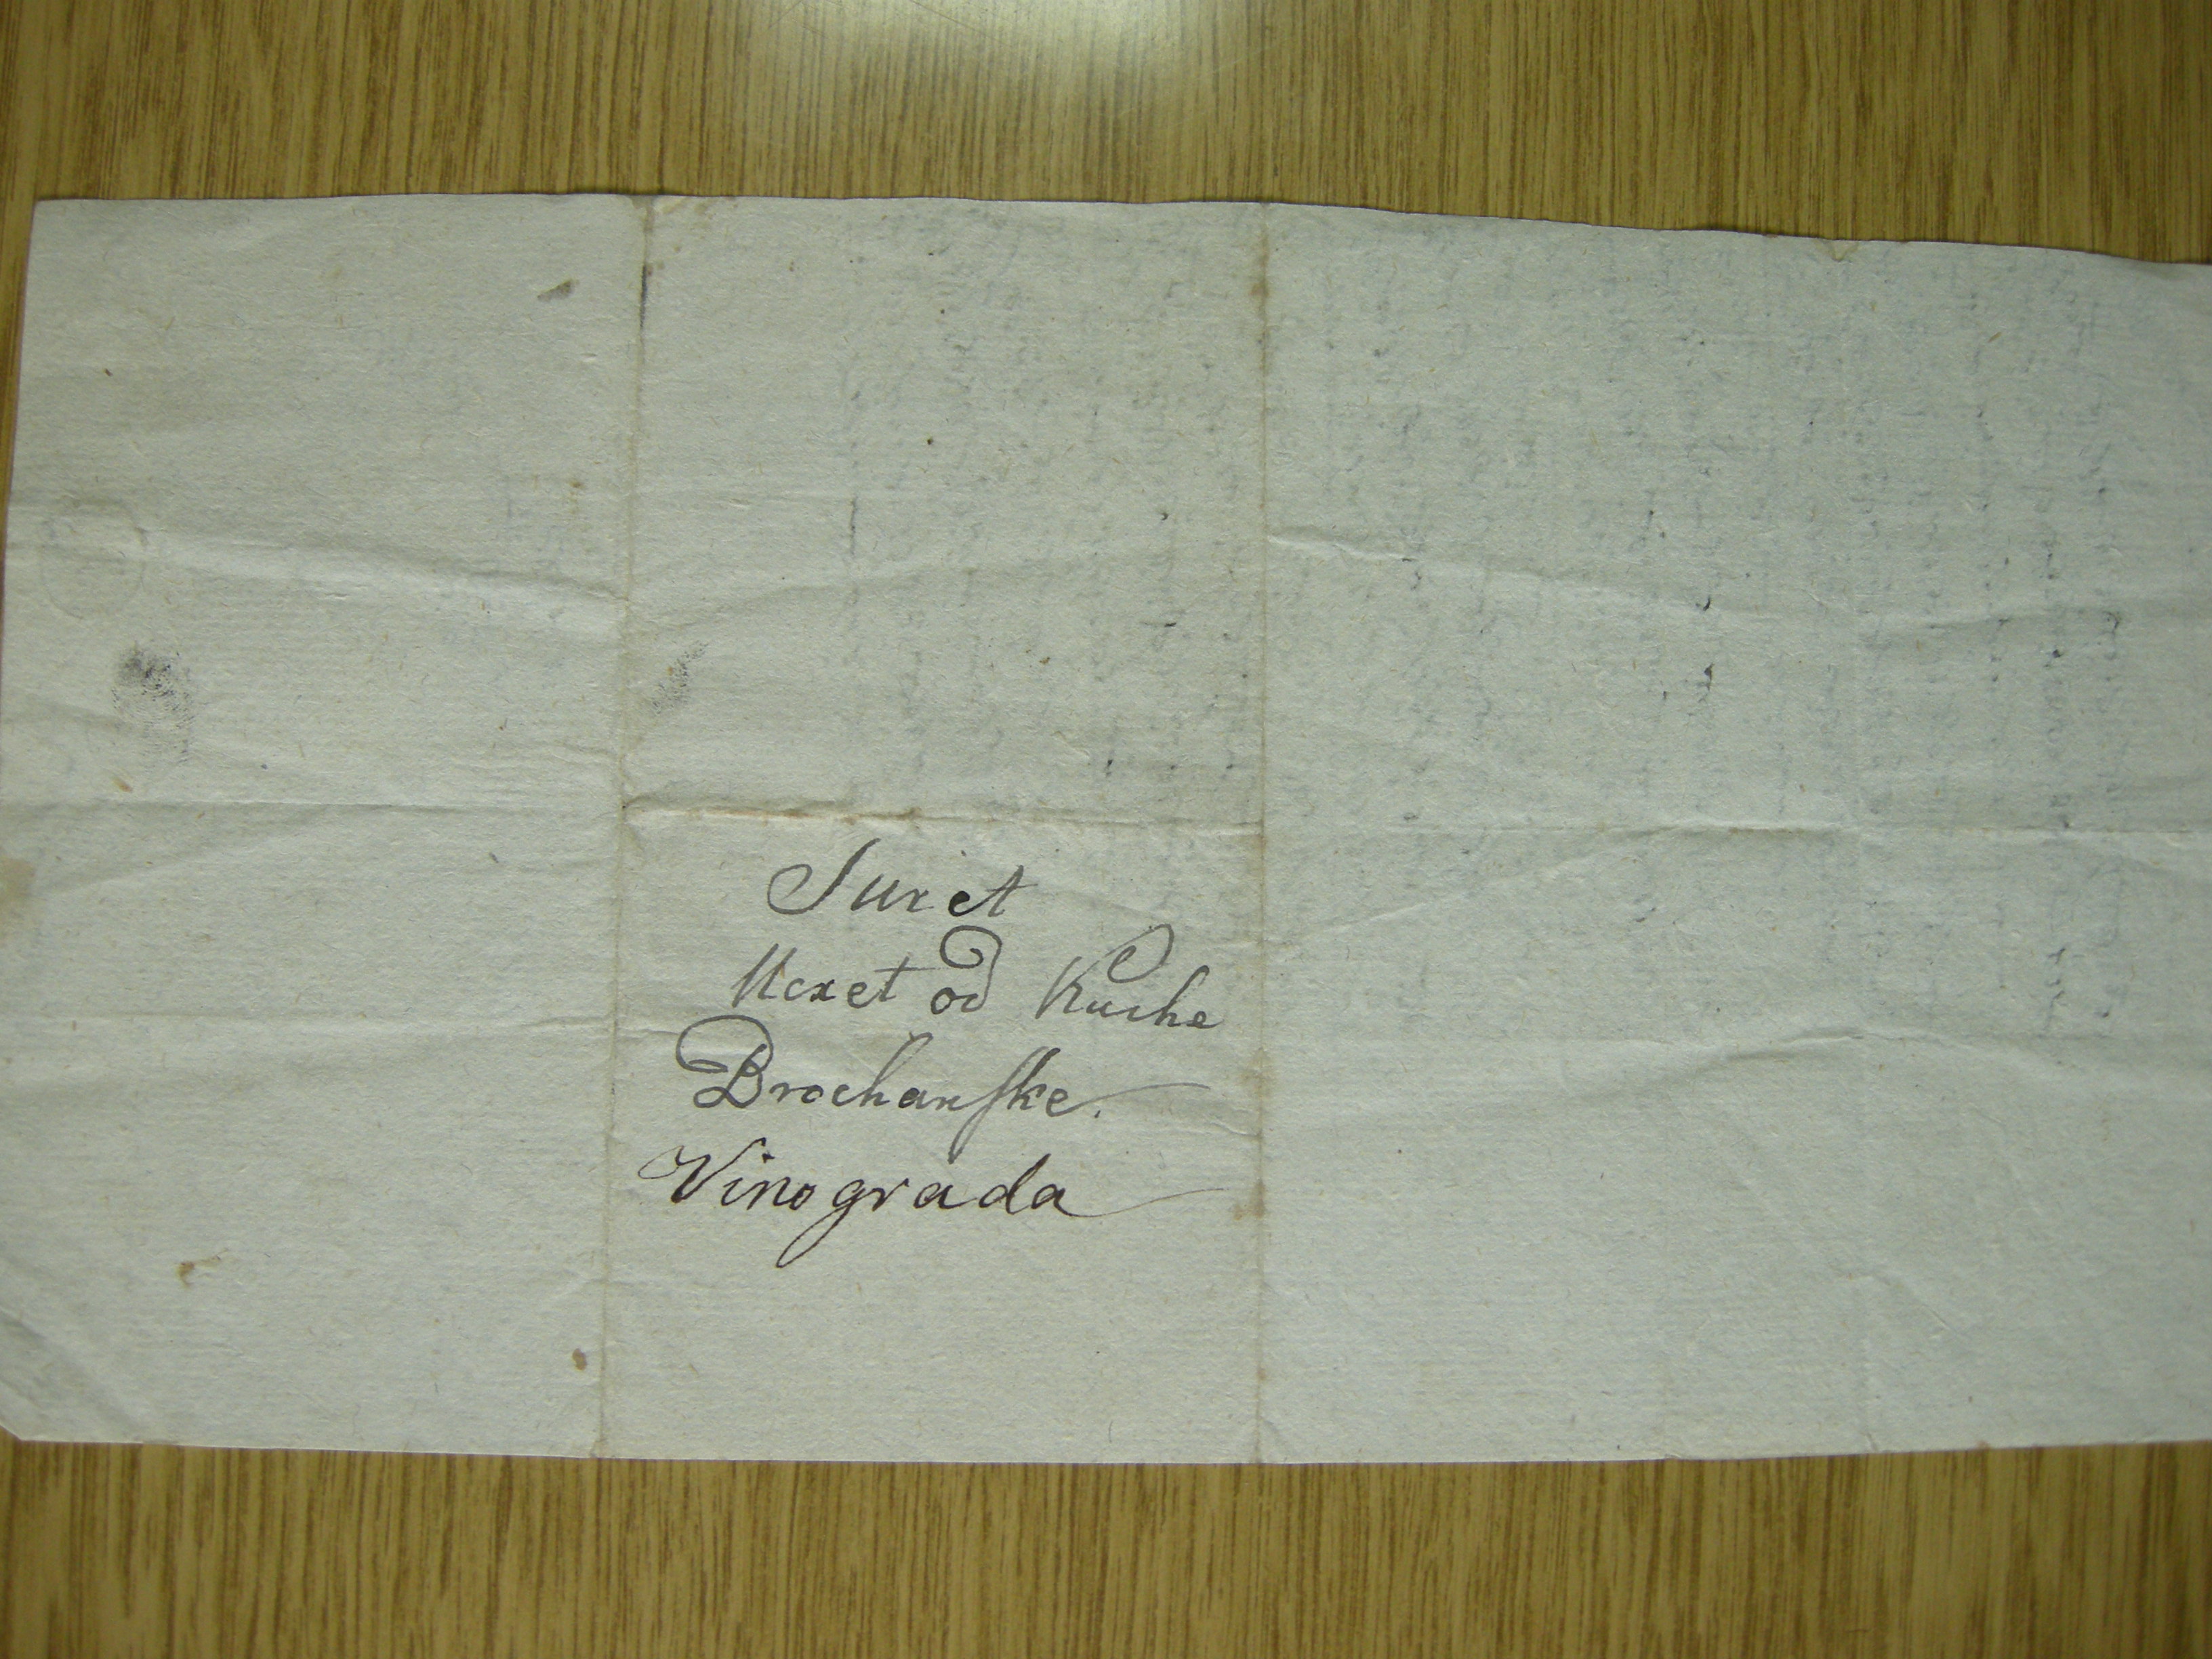 Suret
Ucxet od Kuche
Brochanske.
Vinograda